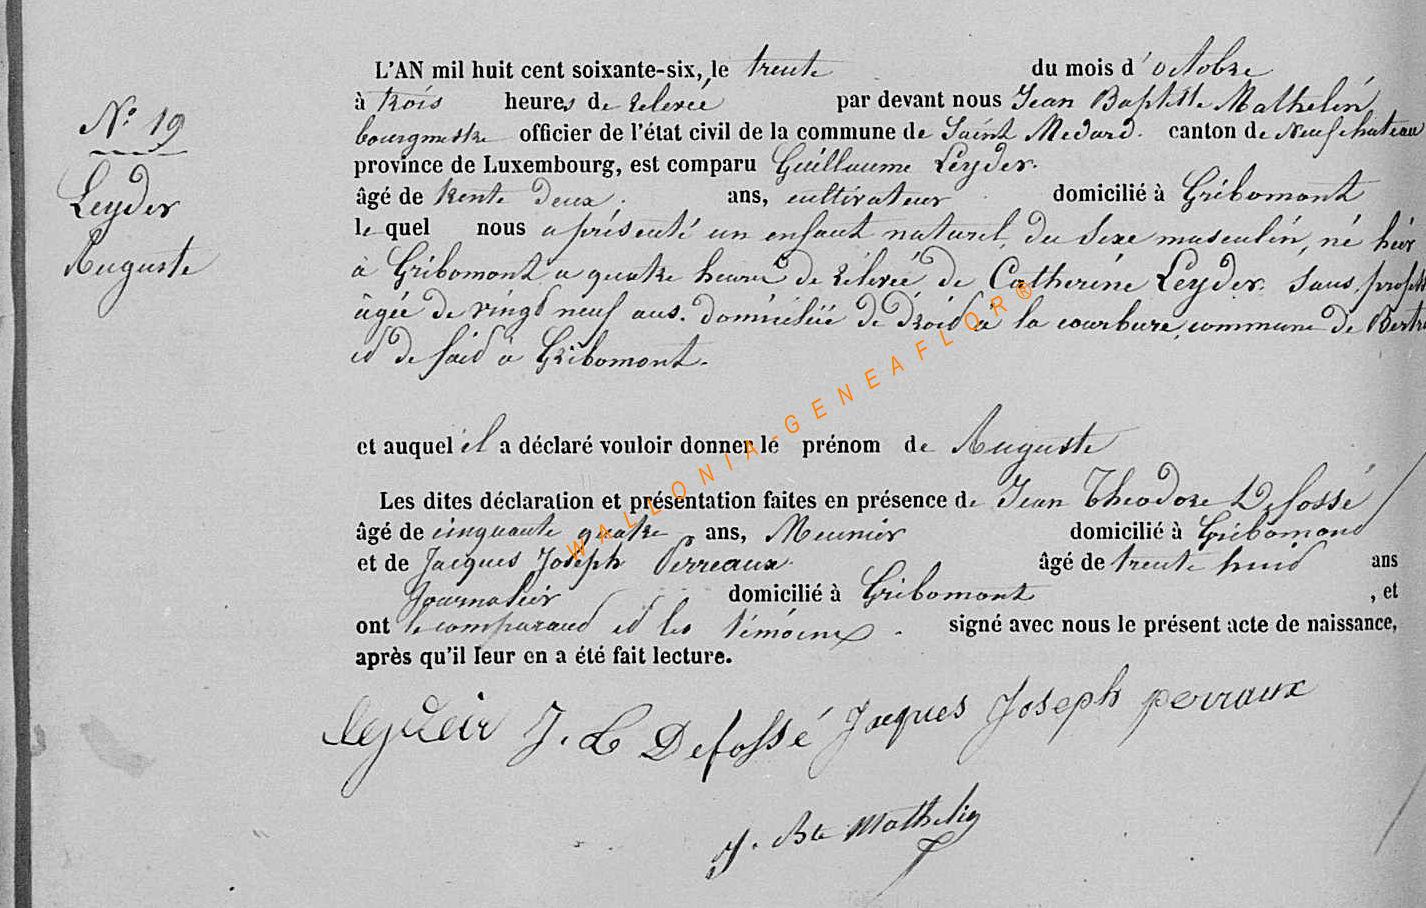 L'AN mil huit cent soixante-six, le trente du mois d'octobre
à trois heures de relevée par devant nous Jean Baptiste Mathelin,
bourgmestre officier de l'état civil de la commune de Saint Medard. canton de Neufchateau
province de Luxembourg, est comparu Guillaume Leyder.
âgé de trente deux ans, cultivateur domicilié à Gribomont
le quel nous a présenté un enfant naturel, du sexe masculin, né hier
à Gribomont a quatre heures de relevée de Catherine Leyder. sans profess
âgée de vingt neuf ans. domiciliée de droit à la courbure, commune de Bertr
et de fait à Gribomont.
N° 19
Leyder
Auguste
et auquel il a déclaré vouloir donner le prénom de Auguste
Les dites déclaration et présentation faites en présence de Jean Theodore Defossé
âgé de cinquante quatre ans, Meunier domicilié à Gribomont
et de Jacques Joseph Perreaux âgé de trente huit ans
Journalier domicilié à Gribomont , et
ont le comparant et les témoins signé avec nous le présent acte de naissance,
après qu'il leur en a été fait lecture.
leydeir J. t Defossé Jacques Joseph perraux
J. Bte Mathelin
WALLONIA-GENEAFLOR®